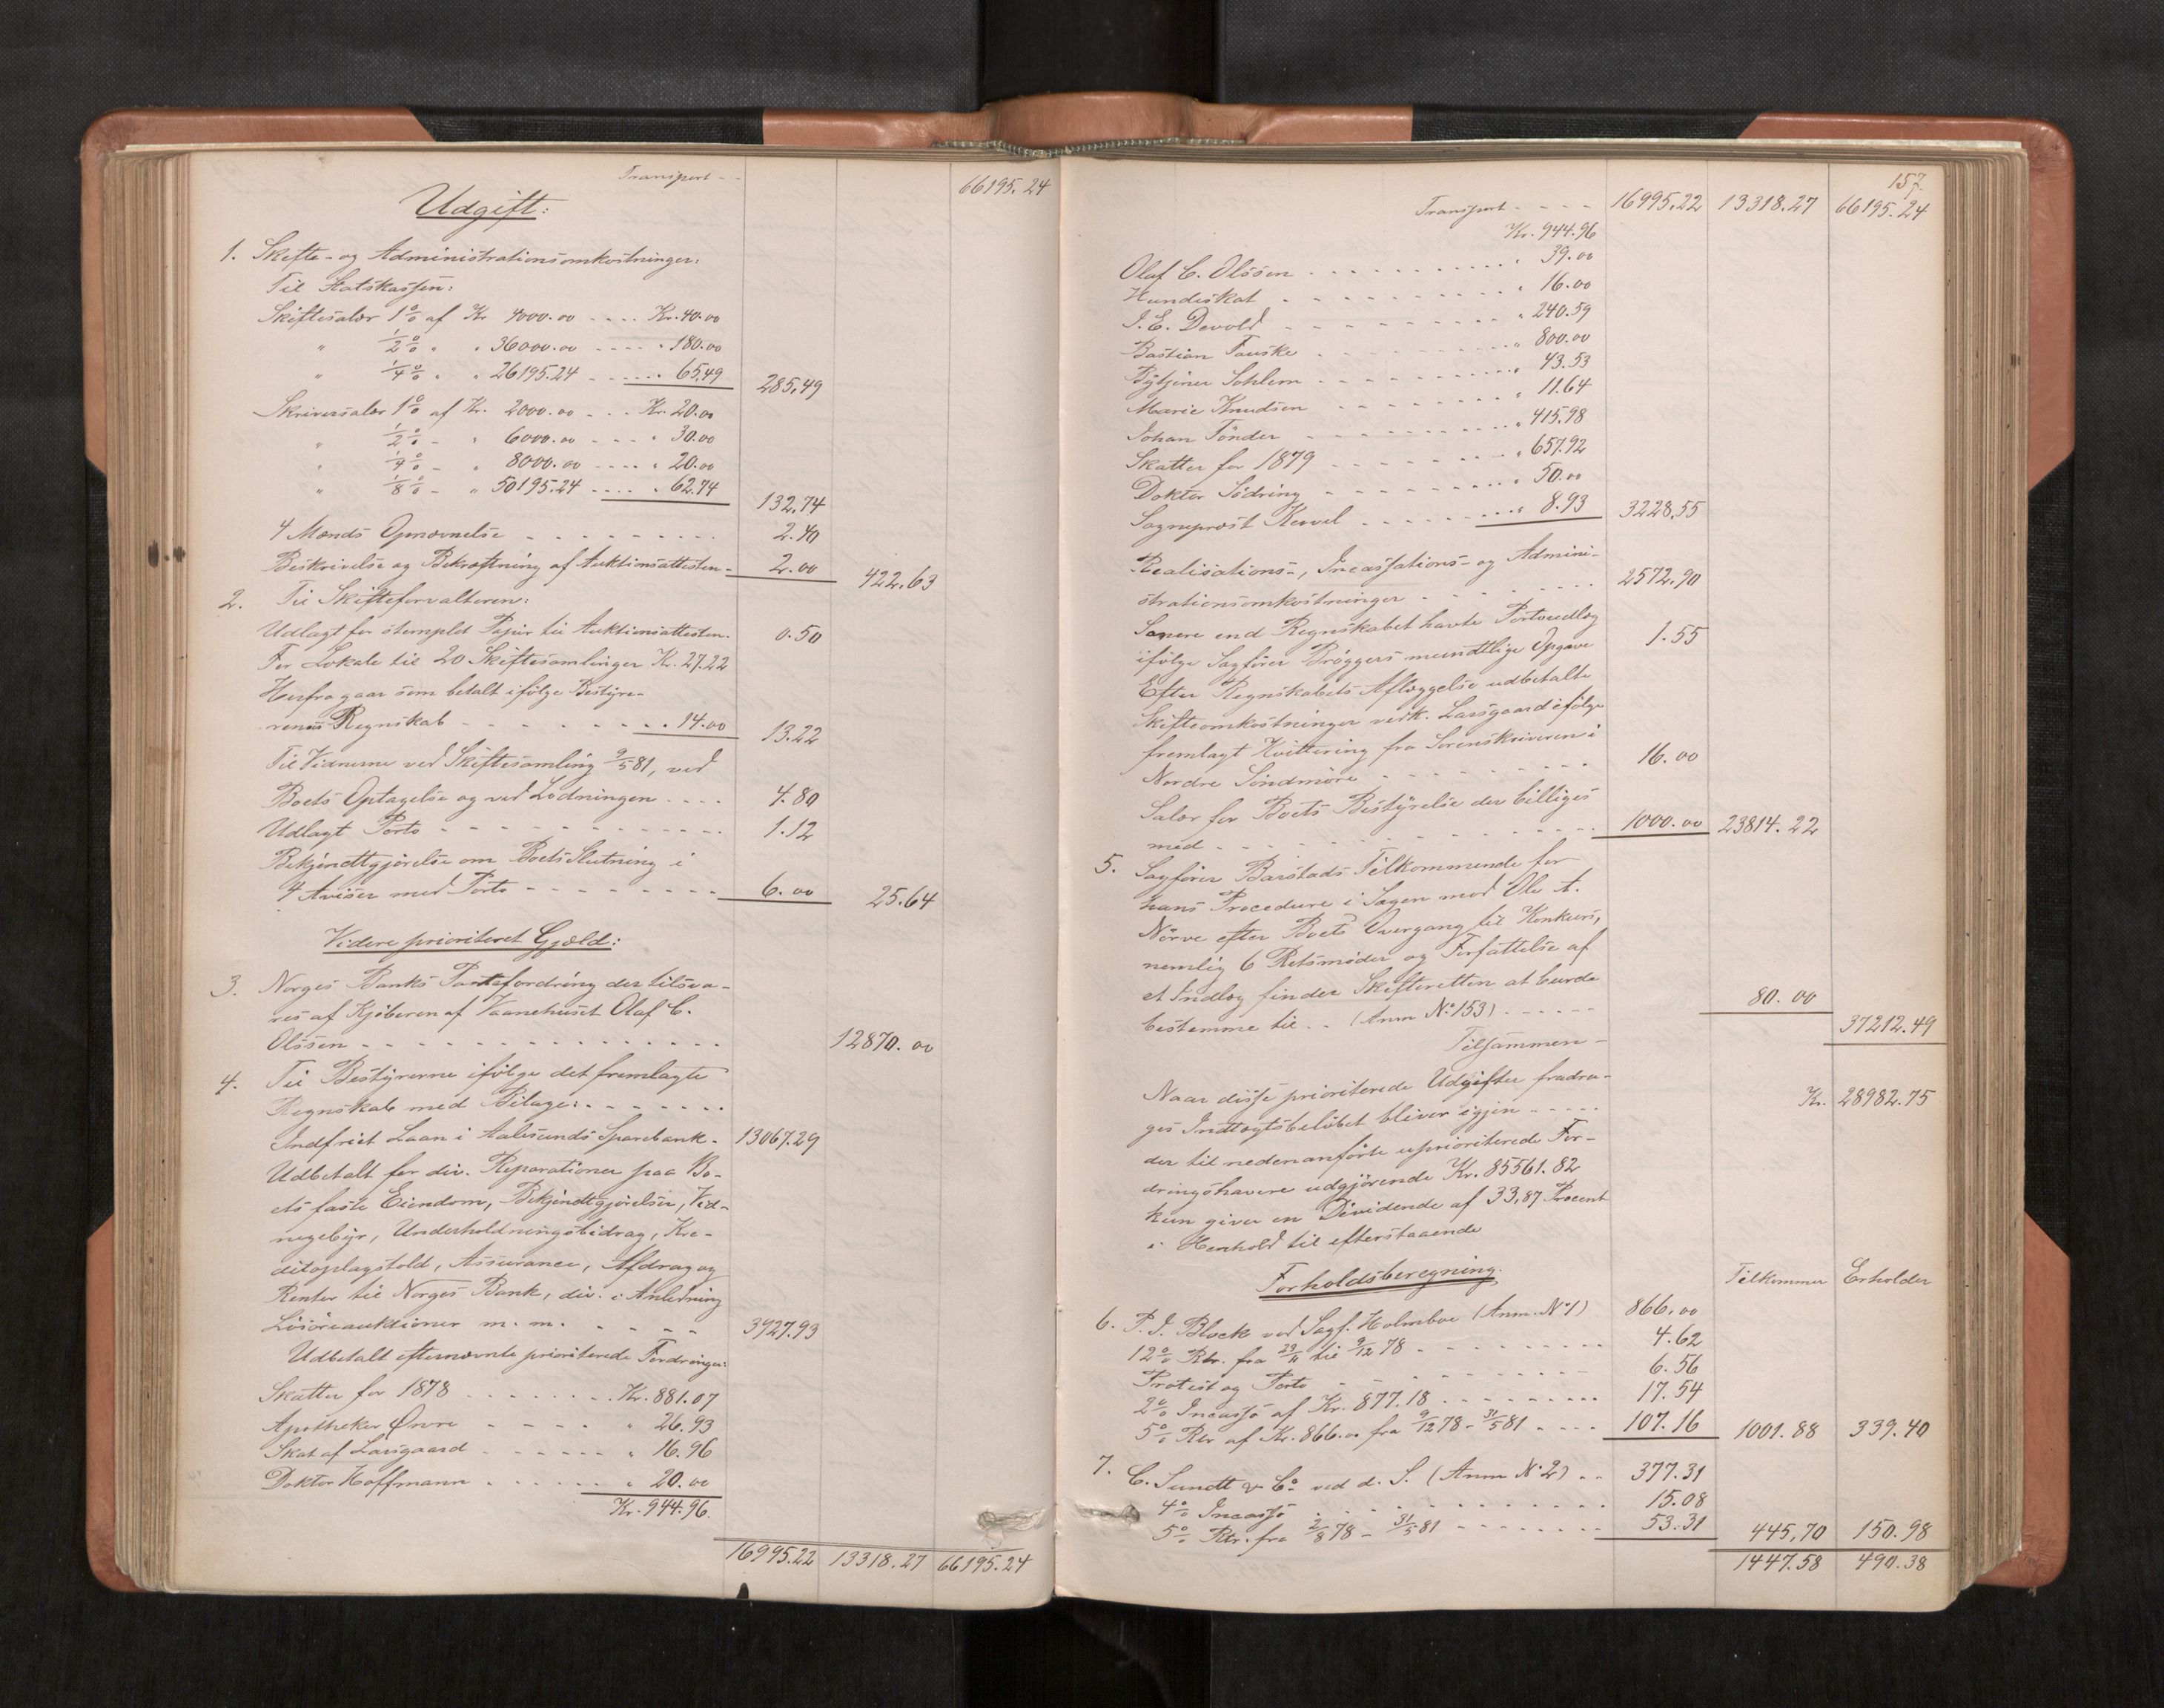 Transport - - 66195.24
Udgift:
1. Skifte- og Administrationsomkostninger:
Til Statskassen:
Skiftesalær 1 % af Kr 4000.00 .... Kr. 40.00
" 1/2 % " " 36000.00 .... " 180.00
" 1/4 % " " 26195.24 .... " 65,49 285,49
Skriversalær 1 % af Kr. 2000.00 ... Kr. 20.00
" 1/2 % - " 6000.00 .... " 30.00
" 1/4 % - " 8000.00 .... " 20.00
" 1/8 % - " 50195.24 .... " 62.74 132.74
4 Mænds Opnævnelse - - - - - - - - 2.40
Beskrivelse og Bekræftning af Auktionsattesten - 2.00 422.63
2. Til Skifteforvalteren:
Udlagt for stemplet Papir til Auktionsattesten - 0.50
For Lokale til 20 Skiftesamlinger Kr. 27.22
Herfra gaar som betalt ifølge Bestyre-
rens Regnskab - - - - - - - - 14.00 13.22
Til Vidnerne ved Skiftesamling 9/5 81, ved
Boets Optagelse og ved Lodningen .... 4.80
Udlagt Porto - - - - - - - - - - 1.12
Bekjendtgjørelse om Boets Slutning i
4 Aviser med Porto - - - - - - - - 6.00 25.64
Videre prioriteret Gjæld:
3. Norges Banks Pantefordring der tilsva-
res af Kjøberen af Vaanehuset Olaf C.
Olssen - - - - - - - - - - - - - 12870.00
4. Til Bestyrerne ifølge det fremlagte
Regnskab med Bilage: - - - - - -
Indfriet Laan i Aalesunds Sparebank - 13067.29
Udbetalt for div. Reparationer paa Bo-
ets faste Eiendom, Bekjendtgjørelser, Vid-
negebyr, Underholdningsbidrag, Kre-
ditoplagstold, Assurance, Afdrag og
Renter til Norges Bank, div. i Anledning
Løsøreauktioner m. m. - - - - - 3927.93
Udbetalt efternævnte prioriterede Fordringer:
Skatter for 1878 . . . . . . . Kr. 881.07
Apotheker Øwre - - - - - " 26.93
Skat af Larsgaard - - - - - - " 16.96
Doktor Hoffmann . . . . . . . " 20.00
Kr. 944.96.
16995.22 13318.27 66195.24
157.
Transport - - - - 16995.22 13318.27 66195.24
Kr. 944.96
Olaf C. Olssen . . . . . . . . . . " 39.00
Hundeskat . . . . . . . . . . " 16.00
J. E. Devold - - - - - - - - - " 240.59
Bastian Fauske . . . . . . . . . " 800.00
Bytjener Sohlem - - - - - - - - " 43.53
Marie Knudsen - - - - - - - - " 11.64
Johan Tønder - - - - - - - - " 415.98
Skatter for 1879 - - - - - - - " 657.92
Doktor Sødring - - - - - - - - " 50.00
Sogneprest - - - - - - - " 8.93 3228,55
Realisations-, Incassations- og Admini-
strationsomkostninger . . . . . . . 2572.90
Senere end Regnskabet havte Portoudlæg
ifølge Sagfører Brøggers mundtlige Opgave 1.55
Efter Regnskabets Aflæggelse udbetalte
Skifteomkostninger vedk. Larsgaard ifølge
fremlagt Kvittering fra Sorenskriveren i
Nordre Søndmøre - - - - - - - 16.00
Salær for Boets Bestyrelse der billiges
med - - - - - - - - - - - - - 1000.00 23814.22
5. Sagfører Barstads Tilkommende for
hans Procedure i Sagen mod Ole A.
Nørve efter Boets Overgang til Konkurs,
nemlig 6 Retsmøder og Forfattelse af
et Indlæg finder Skifteretten at burde
bestemme til . . (Anm No. 153) - - - - - - 80.00
Tilsammen - 37212.49
Naar disse prioriterede Udgifter fradra-
ges Indtægtsbeløbet bliver igjen - - - - - Kr. 28982.75
der til nedenanførte uprioriterede For-
dringshavere udgjørende Kr. 85561.82
kun giver en Dividende af 33,87 Procent
i Henhold til efterstaaende
Forholdsberegning. Tilkommer Erholder
6. P. J. Block ved Sagf. Holmboe (Anm. No 1) 866.00
12 % Rtr. fra 23/11 til 9/12 78 - - - - - - - - 4.62
Protest og Porto - - - - - - - - - 6.56
2 % Incasso af Kr. 877.18 . . . . . . . 17.54
5 % Rtr af Kr. 866.00 fra 9/12 78 - 31/5 81 - - - - 107.16 1001.88 339.40
7. C. Sundt & Co. ved d. S. (Anm No 2) - - 377.31
4 % Incasso . . . . . . . . . . 15.08
5 % Rtr. fra 2/8 78 - 31/5 81 - - - - - - - 53.31 445,70 150.98
1447.58 490.38